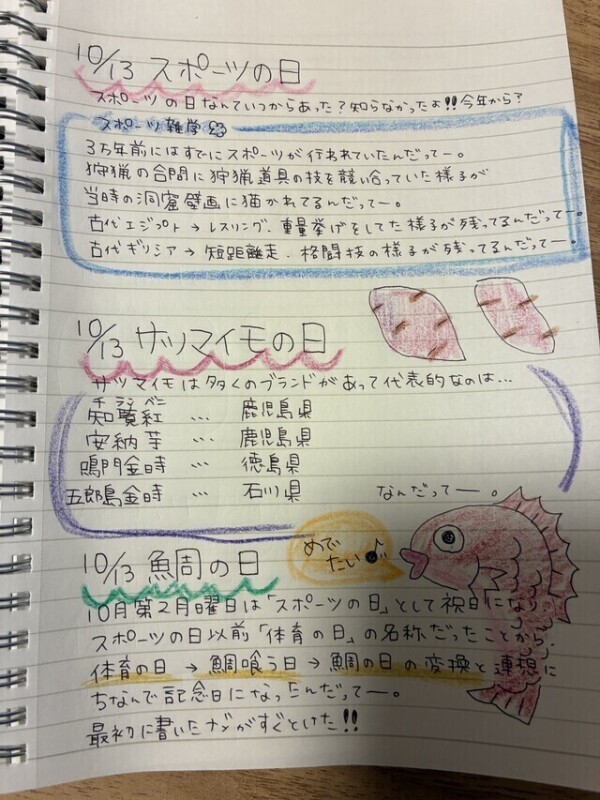 10/13 スポーツの日
スポーツの日なんていつからあった?知らなかったよ!!今年から?
スポーツ雑学
3万年前にはすでにスポーツが行われていたんだってー。
狩猟の合間に狩猟道具の技を競い合っていた様子が
当時の洞窟壁画に描かれてるんだってー。
古代エジプト→レスリング、重量挙げをしてた様子が残ってるんだってー。
古代ギリシア→短距離走、格闘技の様子が残ってるんだってー。
10/13 サツマイモの日
サツマイモは多くのブランドがあって代表的なのは…
チランベニ
知覧紅 … 鹿児島県
安納芋 … 鹿児島県
鳴門金時 … 徳島県
五郎島金時 … 石川県
なんだってー。
10/13 鯛の日
めで
たい♪
10月第2月曜日は「スポーツの日」として祝日になり。
スポーツの日以前「体育の日」の名称だったことから、
体育の日→鯛喰う日→鯛の日の変換と連想に
ちなんで記念日になったんだってー。
最初に書いたナゾがすぐとけた!!